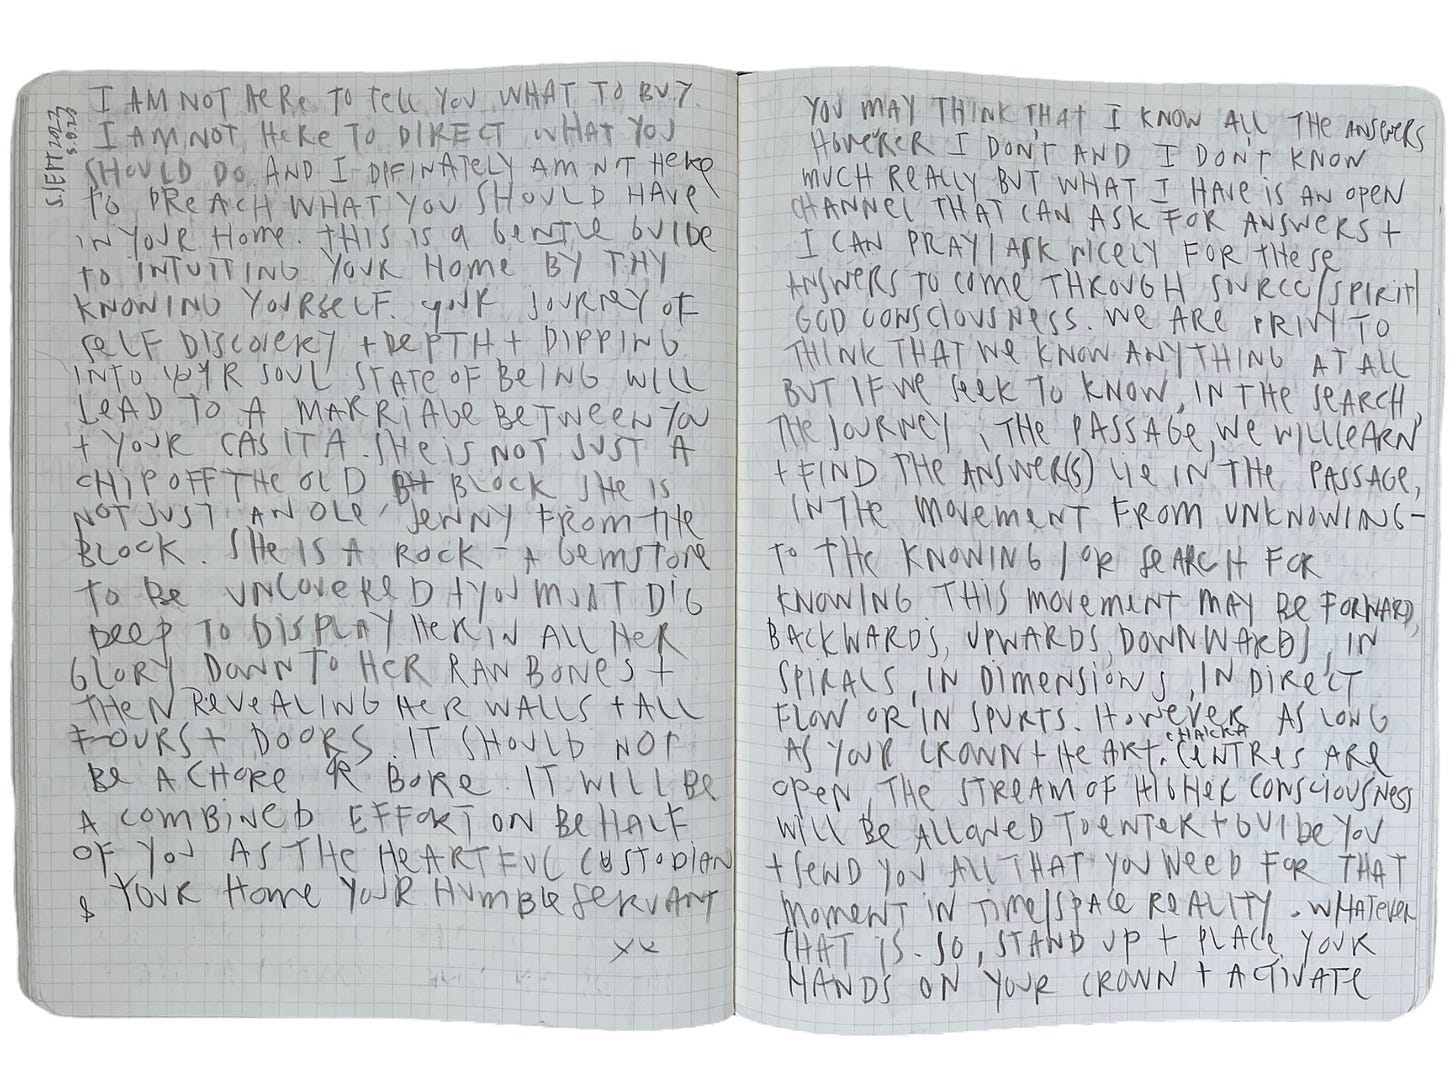 5.SEPT 2023
I AM NOT HERE TO TELL YOU WHAT TO BUY.
I AM NOT HERE TO DIRECT WHAT YOU
SHOULD DO AND I DIFINATELY AM NOT HERE
TO PREACH WHAT YOU SHOULD HAVE
IN YOUR HOME. THIS IS A GENTLE GUIDE
TO INTUITING YOUR HOME BY THY
KNOWING YOURSELF. YOUR JOURNEY OF
SELF DISCOVERY + DEPTH + DIPPING
INTO YOUR SOUL STATE OF BEING WILL
LEAD TO A MARRIAGE BETWEEN YOU
+ YOUR CASITA. SHE IS NOT JUST A
CHIP OFF THE OLD BLOCK SHE IS
NOT JUST AN OLE' JENNY FROM THE
BLOCK. SHE IS A ROCK - A GEMSTONE
TO BE UNCOVERED + YOU MUST DIG
DEEP TO DISPLAY HER IN ALL HER
GLORY DOWN TO HER RAW BONES +
THEN REVEALING HER WALLS + ALL
FOURS + DOORS. IT SHOULD NOT
BE A CHORE OR BORE. IT WILL BE
A COMBINED EFFORT ON BEHALF
OF YOU AS THE HEARTFUL CUSTODIAN
& YOUR HOME YOUR HUMBLE SERVANT
xx
YOU MAY THINK THAT I KNOW ALL THE ANSWERS
HOWEVER I DON'T AND I DON'T KNOW
MUCH REALLY BUT WHAT I HAVE IS AN OPEN
CHANNEL THAT CAN ASK FOR ANSWERS +
I CAN PRAY/ASK NICELY FOR THESE
ANSWERS TO COME THROUGH SOURCE/SPIRIT/
GOD CONSCIOUSNESS. WE ARE PRIVY TO
THINK THAT WE KNOW ANYTHING AT ALL
BUT IF WE SEEK TO KNOW, IN THE SEARCH,
THE JOURNEY, THE PASSAGE, WE WILL LEARN
+ FIND THE ANSWER(S) LIE IN THE PASSAGE,
IN THE MOVEMENT FROM UNKNOWING -
TO THE KNOWING / OR SEARCH FOR
KNOWING THIS MOVEMENT MAY BE FORWARD,
BACKWARDS, UPWARDS, DOWNWARDS, IN
SPIRALS, IN DIMENSIONS, IN DIRECT
FLOW OR IN SPURTS. HOWEVER AS LONG
AS YOUR CROWN + HEART CHACKA CENTRES ARE
OPEN, THE STREAM OF HIGHER CONSCIOUSNESS
WILL BE ALLOWED TO ENTER + GUIDE YOU
+ SEND YOU ALL THAT YOU NEED FOR THAT
MOMENT IN TIME/SPACE REALITY. WHATEVER
THAT IS. SO, STAND UP + PLACE YOUR
HANDS ON YOUR CROWN + ACTIVATE